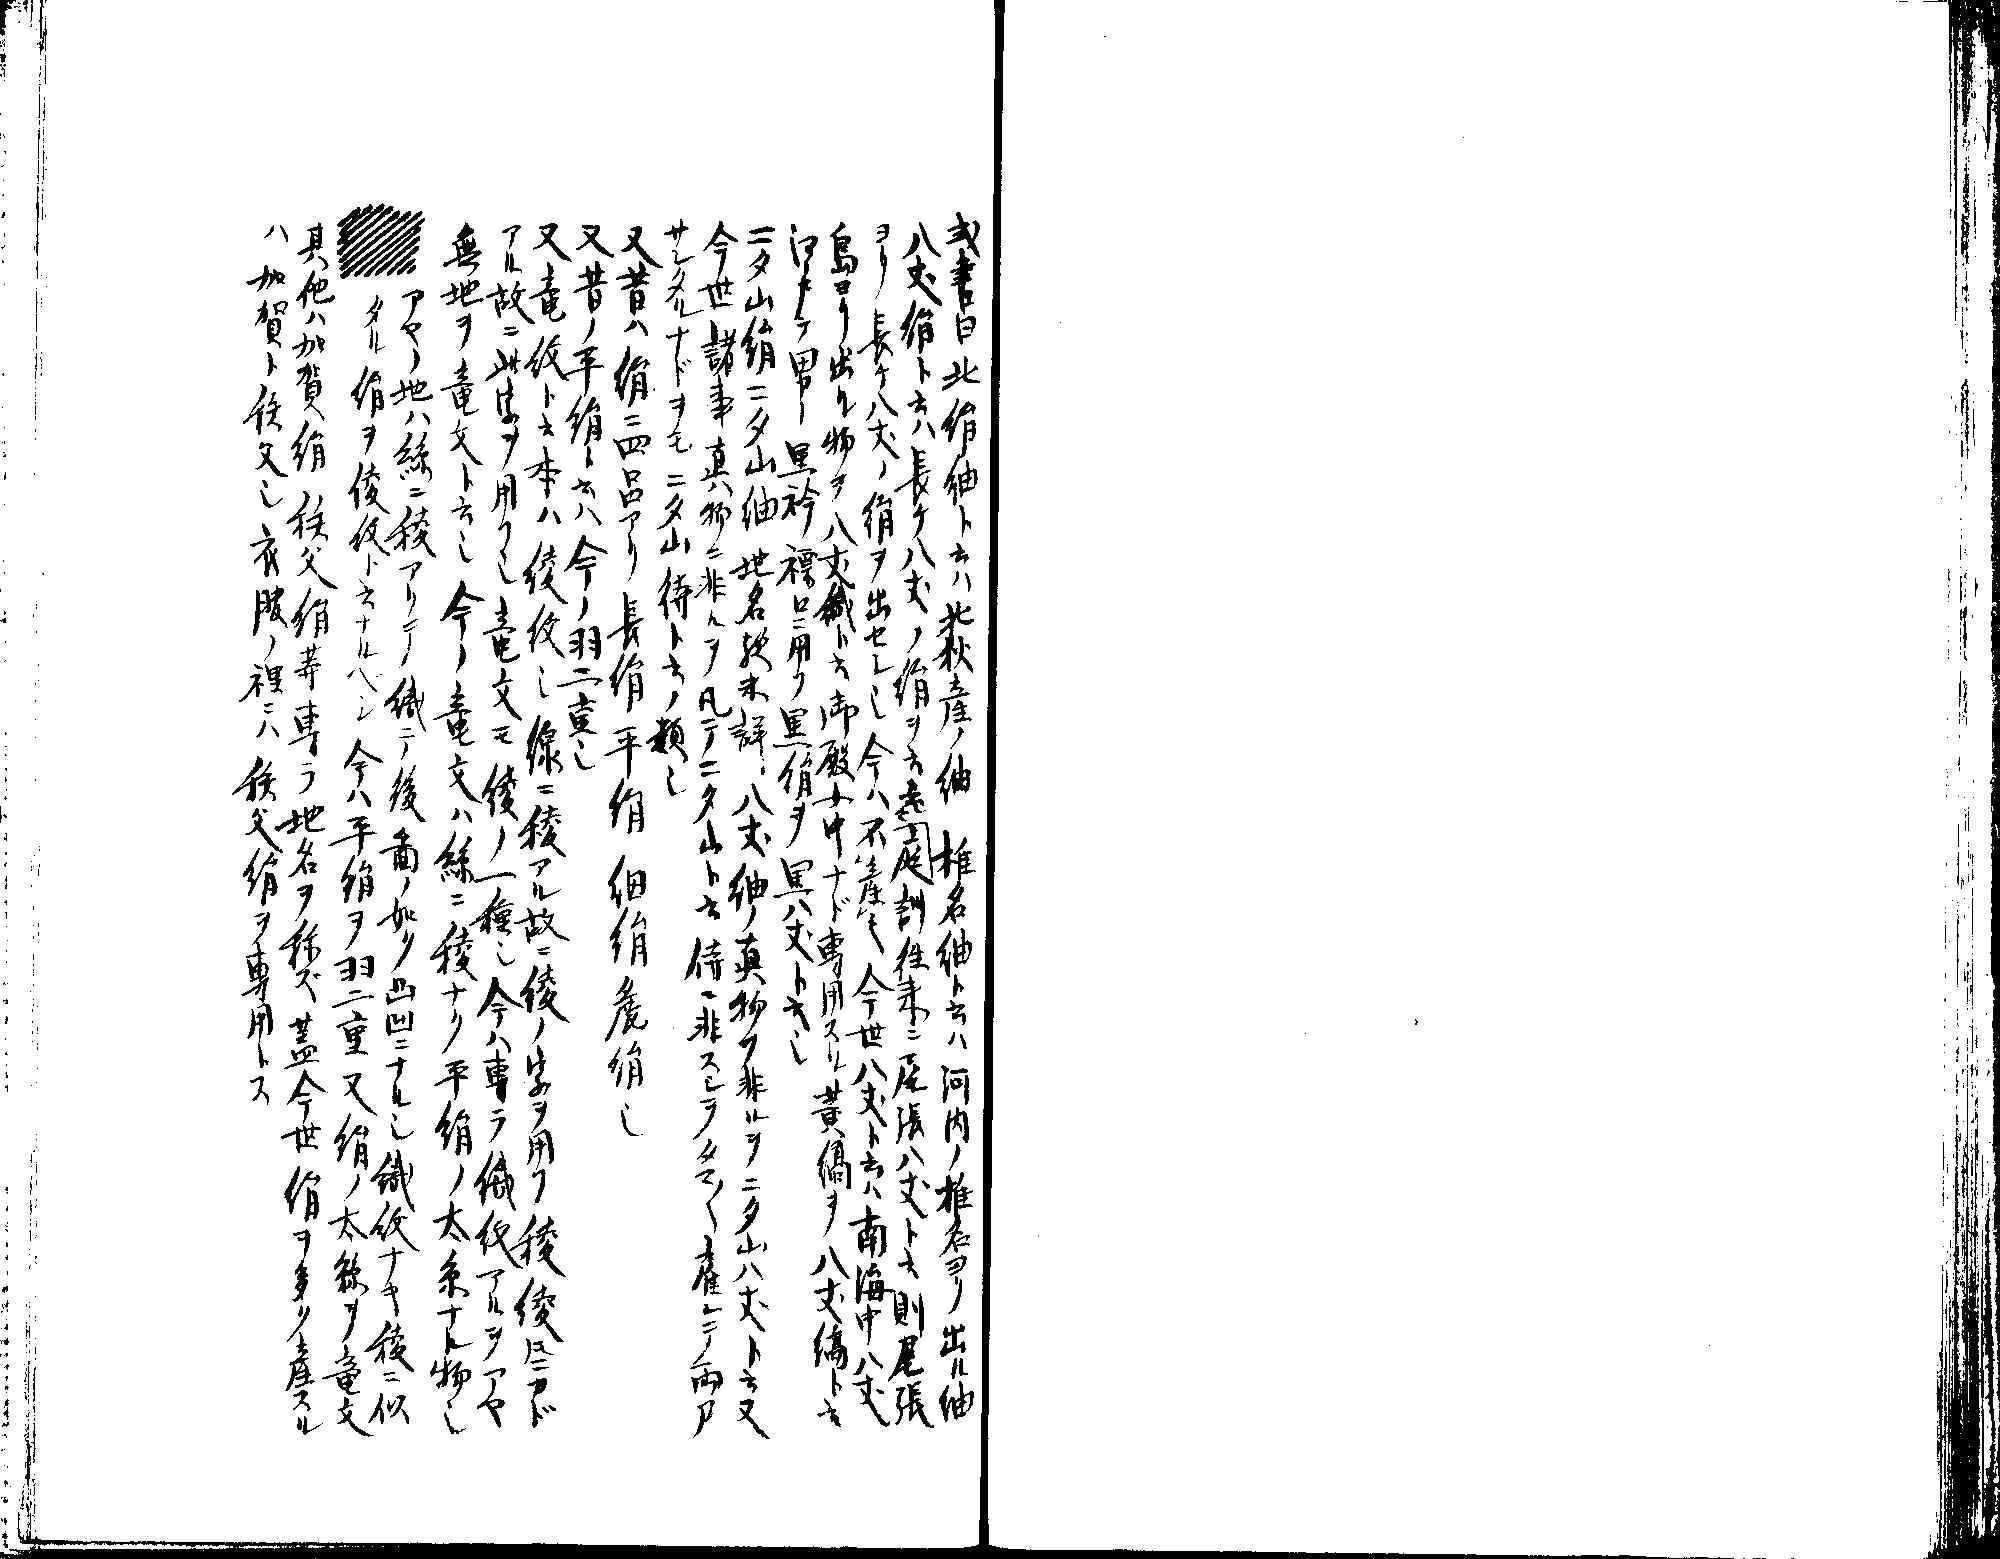 或書曰北絹紬ト云ハ北狄産ノ紬 椎名紬ト云ハ河内ノ椎名ヨリ出ル紬
八丈絹ト云ハ長ケ八丈ノ絹ヲ云 庭訓往来ニ尾張八丈ト云則尾張
ヨリ長ケ八丈ノ絹ヲ出セシ也今ハ不産也今世八丈ト云ハ南海中八丈
島ヨリ出ル物ヲ八丈織ト云御殿女中ナド専用スル黄縞ヲ八丈縞ト云
江戸ニテ男ノ黒衿襟口ニ用フ黒絹ヲ黒八丈ト云也
ニタ山絹ニタ山紬地名歟未詳八丈紬ノ真物ヲ非ルヲニタ山八丈ト云又
今世諸事真物ニ非ルヲ凡テニタ山ト云侍ニ非スシテタマ〱雇レテ両刀
サシタルナドヲモニタ山侍ト云ノ類也
又昔ハ絹ニ四品アリ長絹平絹細絹麁絹也
又昔ノ平絹ト云ハ今ノ羽二重也
又竜紋ト云本ハ綾紋也線ニ稜アル故ニ綾ノ字ヲ用フ稜綾トモニカド
アル故ニ此字ヲ用フ也竜文モ綾ノ一種也今ハ専ラ織紋アルヲアヤ
無地ヲ竜文ト云也今ノ竜文ハ絲ニ稜ナク平絹ノ太糸ナル物也
アヤノ地ハ絲ニ稜アリテ織テ後図ノ如ク凸凹ニナル也織紋ナキ稜ニ似
タル絹ヲ綾紋ト云ナルベシ今ハ平絹ヲ羽二重又絹ノ太絲ヲ竜文
其他ハ加賀絹秩父絹等専ラ地名ヲ称ズ蓋今世絹ヲ多ク産スル
ハ加賀ト秩父也衣服ノ裡ニハ秩父絹ヲ専用トス